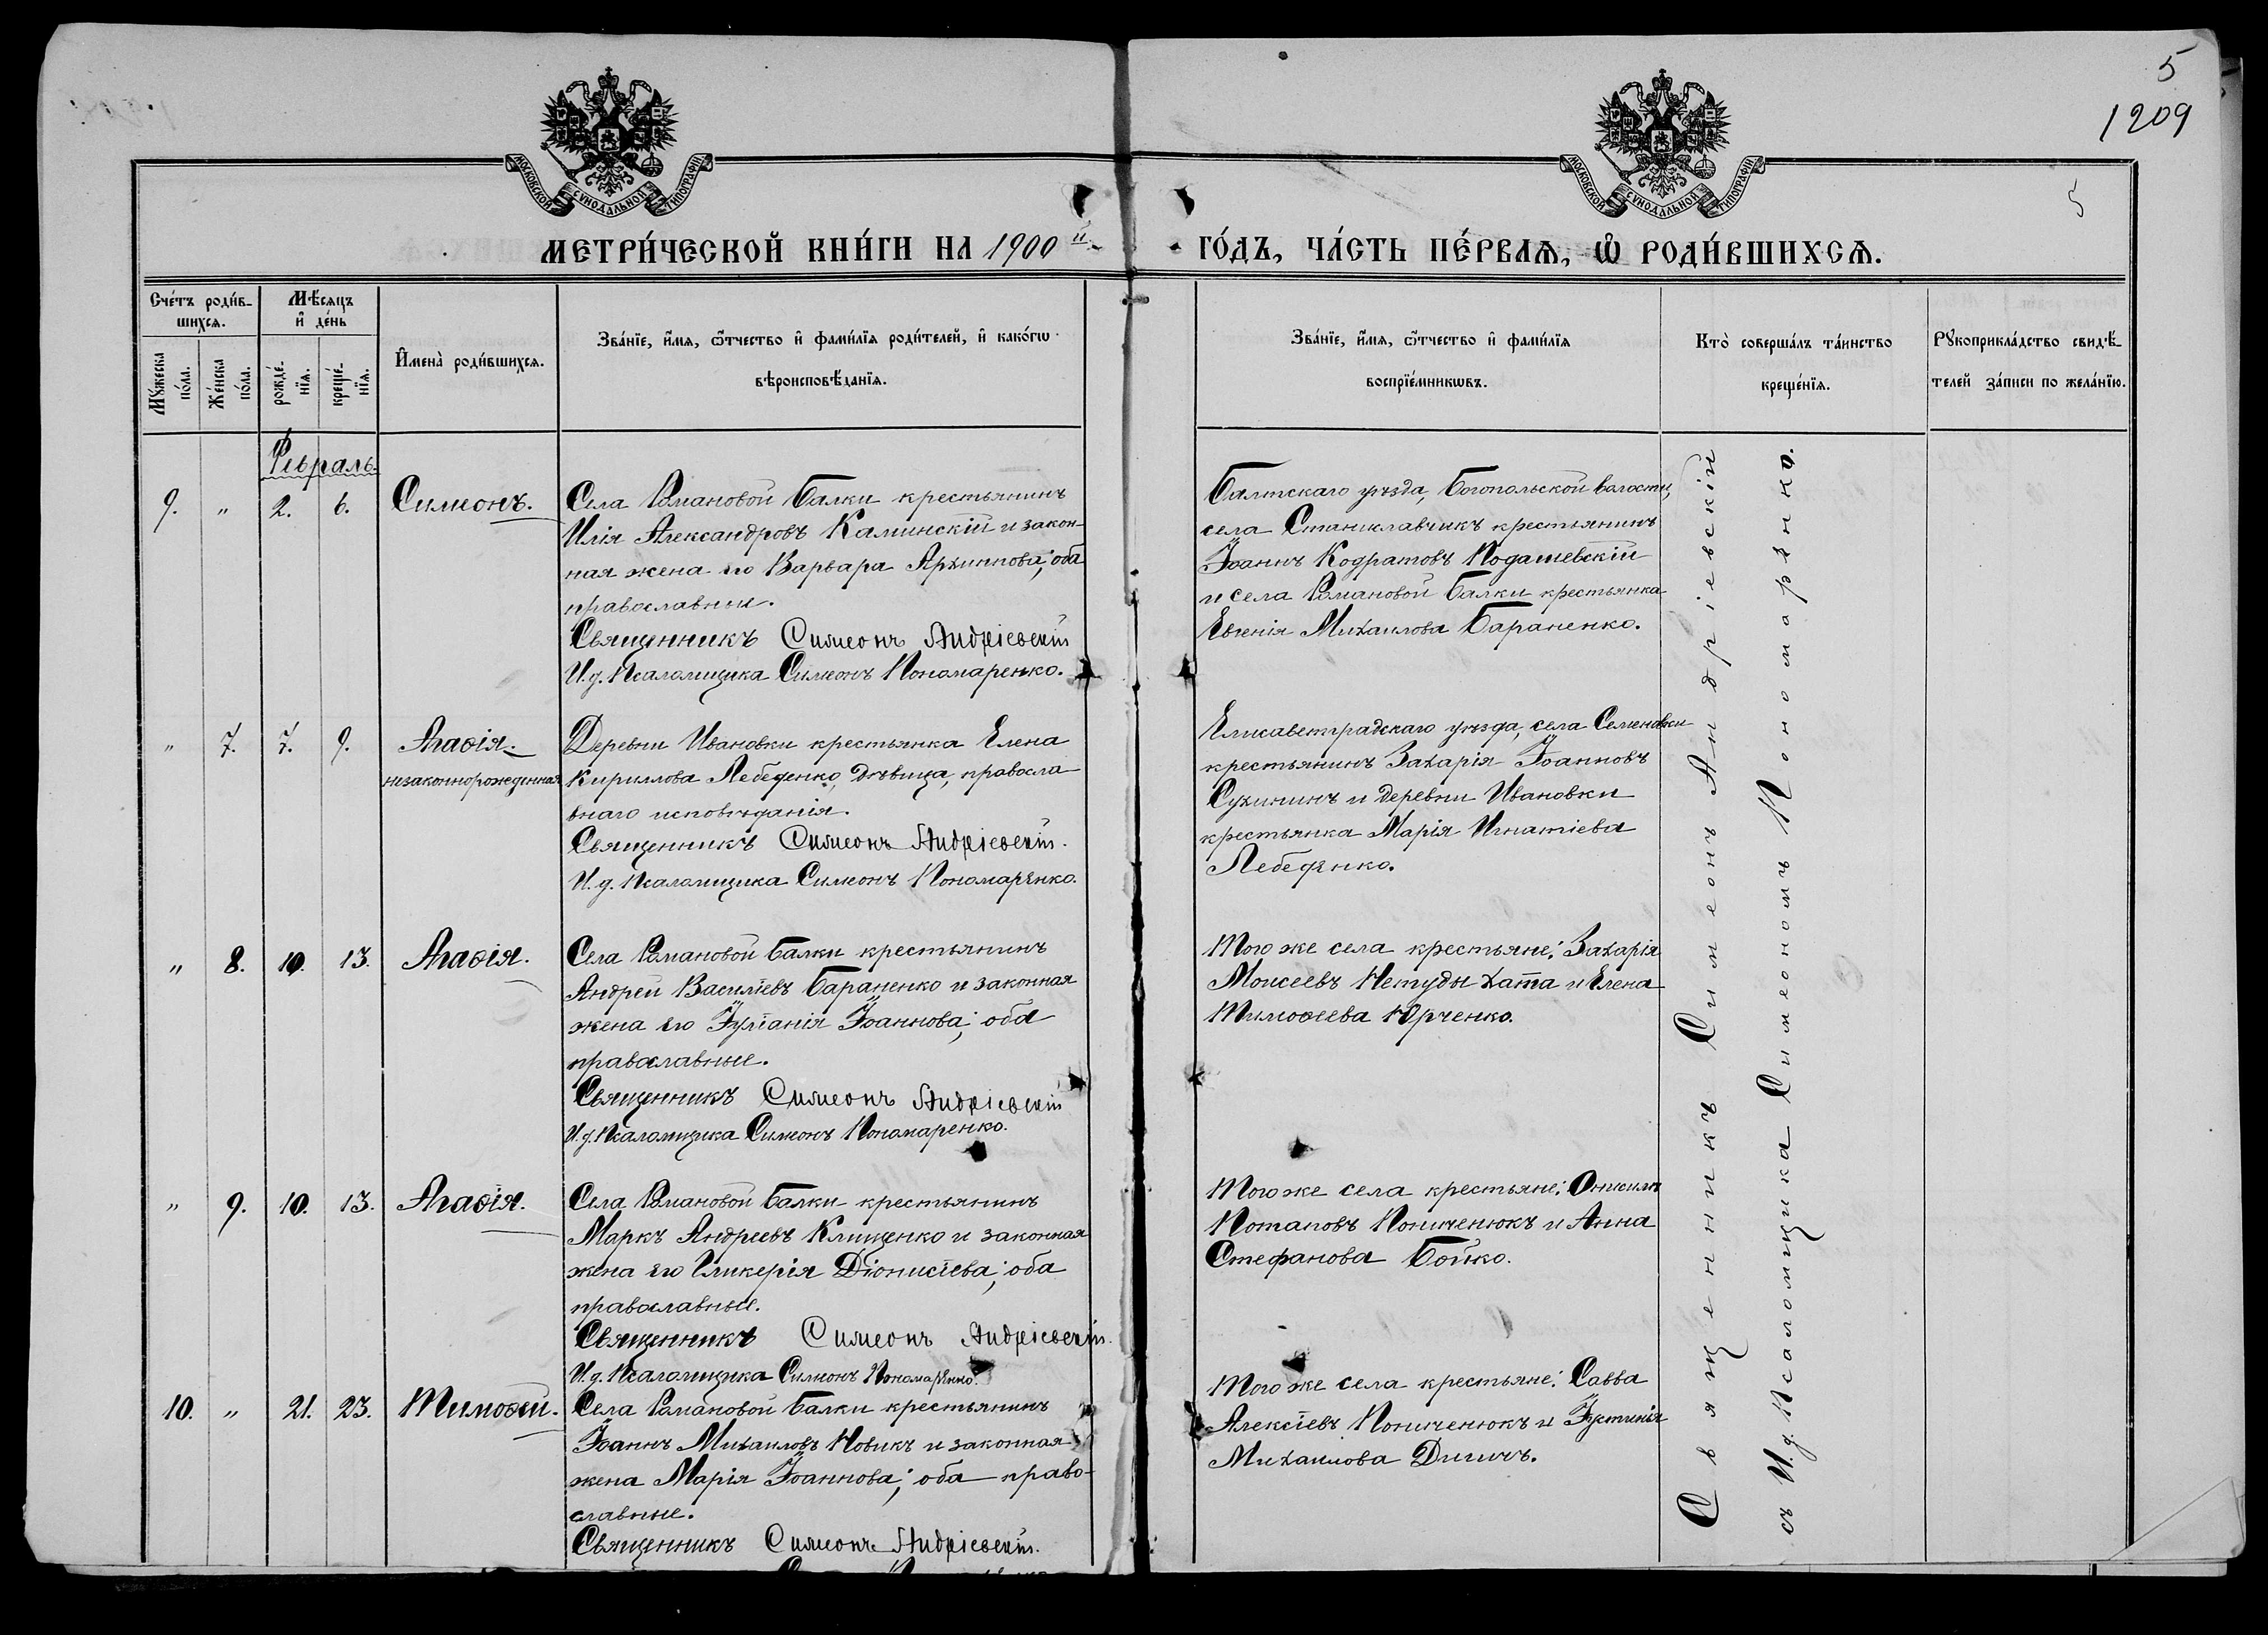 5
1209
5
МОСКОВСКОЙ СУНОДАЛЬНОЙ ТИПОГРАФІИ
МОСКОВСКОЙ СУНОДАЛЬНОЙ ТИПОГРАФІИ
МЕТРИ́ЧЕСКОЙ КНИ́ГИ НА 1900 й
ГО́ДЪ, ЧА́СТЬ ПЕ́РВАѦ, Ѡ҆ РОДИ́ВШИХСѦ.
Сче́тъ роди́в-
шихсѧ.
Мꙋ́жеска по́ла.
Же́нска по́ла.
Мѣ́сѧцъ
и҆ де́нь
рожде́-
нїѧ.
креще́-
нїѧ.
И҆мена̀ роди́вшихсѧ.
Зва́нїе, и҆́мѧ, ѻ҆́тчество и҆ фами́лїѧ роди́телей, и҆ како́гѡ
вѣроисповѣ́данїѧ.
Зва́нїе, и҆́мѧ, ѻ҆́тчество и҆ фами́лїѧ
воспрїе́мникѡвъ.
Кто̀ соверша́лъ та́инство
креще́нїѧ.
Рꙋкоприкла́дство свидѣ́-
телей за́писи по жела́нїю.
Февраль
9. " 2. 6. Симеонъ.
Села Романовой Балки крестьянинъ
Илія Александровъ Калинскій и закон-
ная жена его Варвара Архиппова; оба
православные.
Священникъ Симеонъ Андріевскій
И. д. Псаломщика Симеонъ Пономаренко.
Балтскаго уѣзда, Богопольской волости,
села Станиславчикъ крестьянинъ
Іоаннъ Кодратовъ Подашевскій
и села Романовой Балки крестьянка
Евгенія Михаилова Бараненко.
" 7. 7. 9. Агаѳія.
незаконнорожденная
Деревни Ивановки крестьянка Елена
Кириллова Лебеденко, дѣвица, правосла-
внаго исповѣданія.
Священникъ Симеонъ Андріевскій.
И. д. Псаломщика Симеонъ Пономаренко.
Елисаветградскаго уѣзда, села Семеновки
крестьянинъ Захарія Іоанновъ
Сухининъ и деревни Ивановки
крестьянка Марія Игнатіева
Лебеденко.
" 8. 10. 13. Агаѳія.
Села Романовой Балки крестьянинъ
Андрей Василіевъ Бараненко и законная
жена его Іуліанія Іоаннова; оба
православные.
Священникъ Симеонъ Андріевскій
И. д. Псаломщика Симеонъ Пономаренко.
Того же села крестьяне: Захарія
Моисеевъ Нетуды хата и Елена
Тимоѳеева Юрченко.
" 9. 10. 13. Агаѳія.
Села Романовой Балки крестьянинъ
Маркъ Андреевъ Клищенко и законная
жена его Гликерія Діонисіева; оба
православные.
Священникъ Симеонъ Андріевскій.
И. д. Псаломщика Симеонъ Пономаренко.
Того же села крестьяне:
Потаповъ Попиченюкъ и Анна
Стефанова Бойко.
10. " 21. 23. Тимоѳей.
Села Романовой Балки крестьянинъ
Іоаннъ Михаиловъ Новикъ и законная
жена Марія Іоаннова; оба право-
славные.
Священникъ Симеонъ Андріевскій.
Того же села крестьяне: Савва
Алексіевъ Попиченюкъ и Іустинія
Михаилова
Священникъ Симеонъ Андріевскій
съ И. д. Псаломщика Симеономъ Пономаренко.